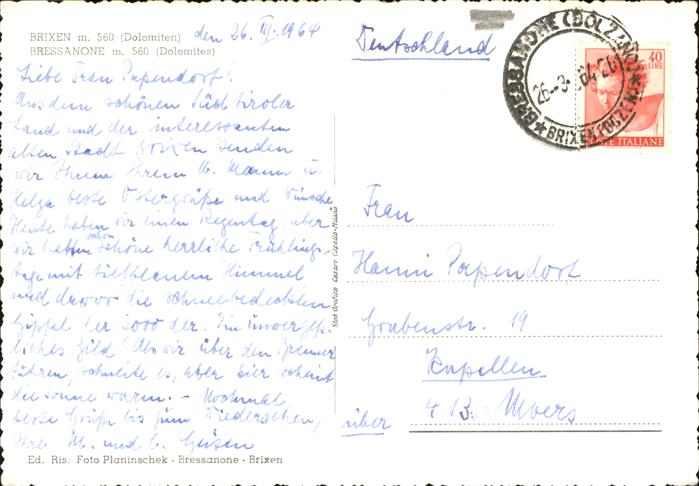 BRIXEN m. 560 (Dolomiten)
BRESSANONE m. 560 (Dolomites)
den 26. III. 1964
Liebe Frau Papendorf!
Aus dem schönen Südtiroler
Land und der interessanten
alten Stadt Brixen senden
wir Ihnen Ihrem lb. Mann u.
Helga beste Ostergrüße und Wünsche
Heute haben wir einen Regentag, aber
wir hatten schon schöne herrliche Frühlings-
tage mit tiefblauem Himmel
und davor die schneebedeckten
Gipfel der 2000 der. Ein unvergeß-
liches Bild! Als wir über den Brenner
fuhren, schneite es, aber hier scheint
die Sonne warm. - Nochmal
beste Grüße bis zum Wiedersehen,
Ihre M. und E.
Ed. Ris. Foto Planinschek - Bressanone - Brixen
Stab Grafico Cesare Capello-Milano
Deutschland
BRESSANONE (BOLZANO)
26-3-64
BRIXEN (BOZEN)
40
LIRE
POSTE ITALIANE
Frau
Hanni Papendorf
Grabenstr. 19
Kapellen
413 Moers
über